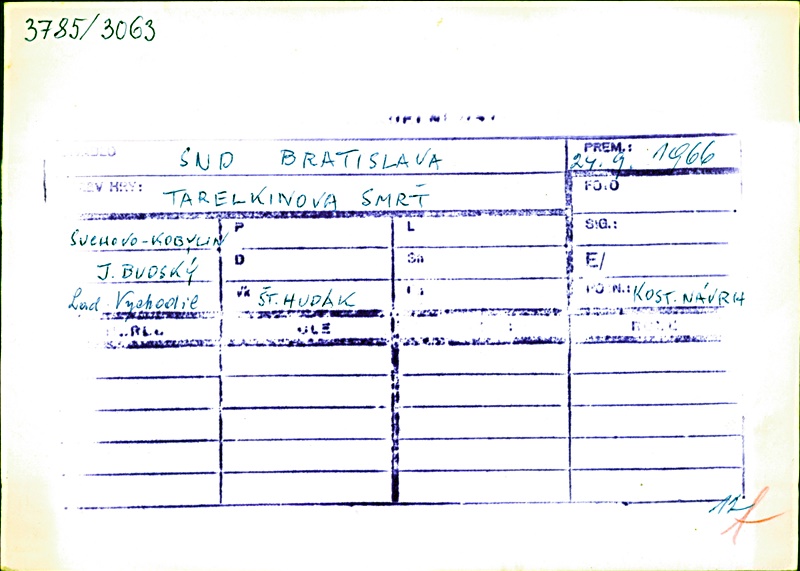 3785/3063
SND BRATISLAVA
PREM.: 24. 9. 1966
HRY: TARELKINOVA SMRŤ
FOTO
SUCHOVO-KOBYLIN P L SIG.:
J. BUDSKÝ D Sn E/
Lad. Vychodil Vk ŠT. HUDÁK KOST. NÁVRH
12